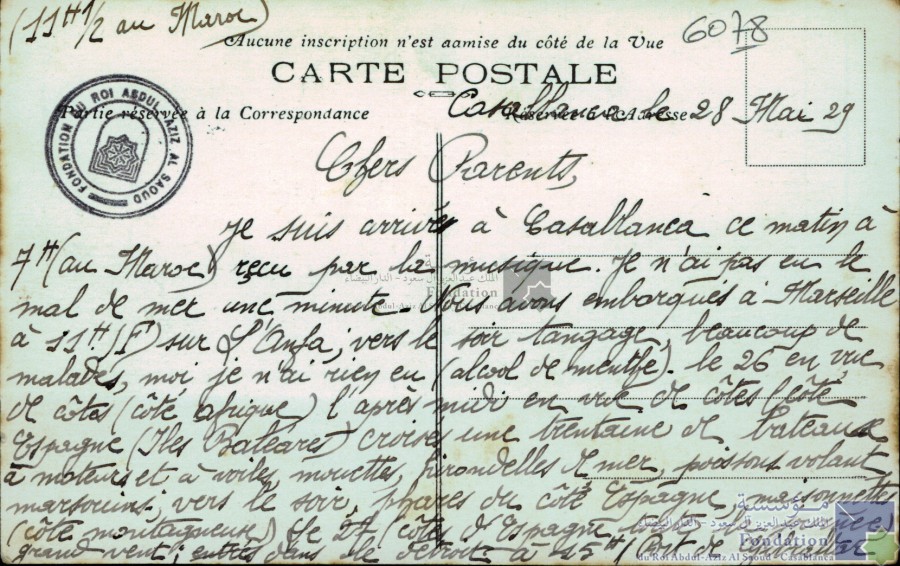 (11H 1/2 au Maroc)
6078
Aucune inscription n'est admise du côté de la Vue
CARTE POSTALE
Partie réservée à la Correspondance
Réservée à l'Adresse
FONDATION DU ROI ABDUL AZIZ AL SAOUD
Casablanca le 28 Mai 29
Chers Parents,
Je suis arrivés à Casablanca ce matin à
7H (au Maroc) reçu par la musique. Je n'ai pas eu le
mal de mer une minute. Nous avons embarqués à Marseille
à 11H (F) sur L'Anfa, vers le soir tangage, beaucoup de
malades, moi je n'ai rien eu (alcool de menthe). le 26 en vue
de côtes (côté afrique) l'après midi en vue de côtes côté
Espagne (Iles Baléares) croisés une trentaine de bateaux
à moteurs et à voiles, mouettes, hirondelles de mer, poissons volant
marsouins, vers le soir, phares du côté Espagne, maisonnettes
(côté montagneuse) Le 27 côtes d'Espagne
grand vent; entrés dans le Détroit à
مؤسسة
الملك عبد العزيز آل سعود - الدار البيضاء
Fondation
du Roi Abdul-Aziz Al Saoud - Casablanca